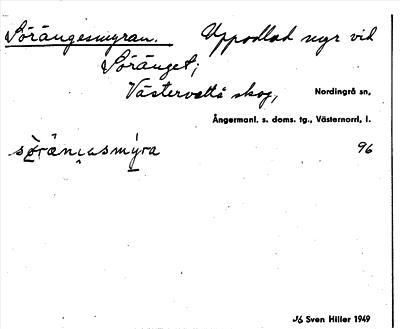 Sörängesmyran. Uppodlad myr vid
Söränget;
Västervattå skog, Nordingrå sn,
Ångermanl. s. doms. tg., Västernorrl. l.
96
Sven Hiller 1949